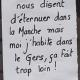 nous disent
d'éternuer dans
la Manche mais
moi j'habite dans
le Gers, ça fait
trop loin !